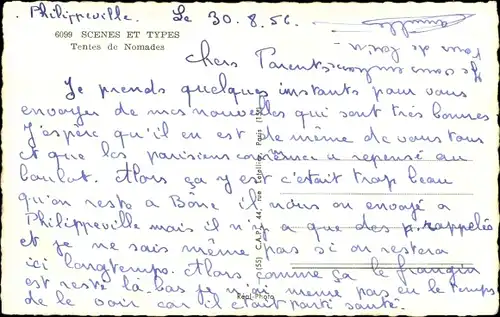 Philippeville. Le 30.8.56.
6099 SCENES ET TYPES
Tentes de Nomades
Chers Parents
Je prends quelques instants pour vous
envoyer de mes nouvelles qui sont très bonnes
J'espère qu'il en est de même de vous tous
et que les parisiens a repensé au
boulot. Alors ça y est c'était trop beau
qu'on reste à Bône il nous on envoyé a
Philippeville mais il n'y a que des rappelés
et je ne sais même pas si on restera
ici longtemps. Alors comme ça le frangin
est resté là-bas je n'ai même pas eu le temps
de le voir car il était parti
(55) C.A.P. 44, rue Letellier, Paris (15e)
Réal-Photo